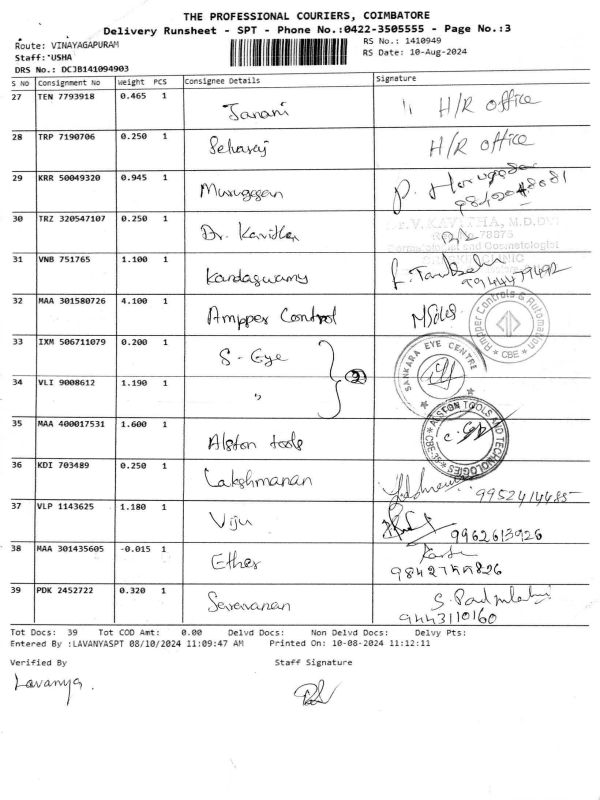 THE PROFESSIONAL COURIERS, COIMBATORE
Delivery Runsheet - SPT - Phone No.:0422-3505555 - Page No.:3
Route: VINAYAGAPURAM RS No.: 1410949
Staff: USHA RS Date: 10-Aug-2024
DRS No.: DCJB141094903
S NO Consignment No Weight PCS Consignee Details Signature
27 TEN 7793918 0.465 1 Janani H/R office
28 TRP 7190706 0.250 1 Selvaraj H/R office
29 KRR 50049320 0.945 1 Muruggan
30 TRZ 320547107 0.250 1 Dr. Kavitha
V. KAVITHA, M.D,DV
78873
Dermatologist and Cosmetologist
CLINIC
31 VNB 751765 1.100 1 Kandaswamy 9944479492
32 MAA 301580726 4.100 1 Ampper Control
Ampper Controls & Automation
CBE
33 IXM 506711079 0.200 1 S-Eye
2
SANKARA EYE CENTRE
34 VLI 9008612 1.190 1 "
35 MAA 400017531 1.600 1 Alston tools
ALSTON TOOLS AND TECHNOLOGIES
CBE-35
36 KDI 703489 0.250 1 Lakshmanan 9952414485
37 VLP 1143625 1.180 1 Viju 9962613926
38 MAA 301435605 -0.015 1 Ether
39 PDK 2452722 0.320 1 Saravanan
9443110160
Tot Docs: 39 Tot COD Amt: 0.00 Delvd Docs: Non Delvd Docs: Delvy Pts:
Entered By :LAVANYASPT 08/10/2024 11:09:47 AM Printed On: 10-08-2024 11:12:11
Verified By Staff Signature
Lavanya.